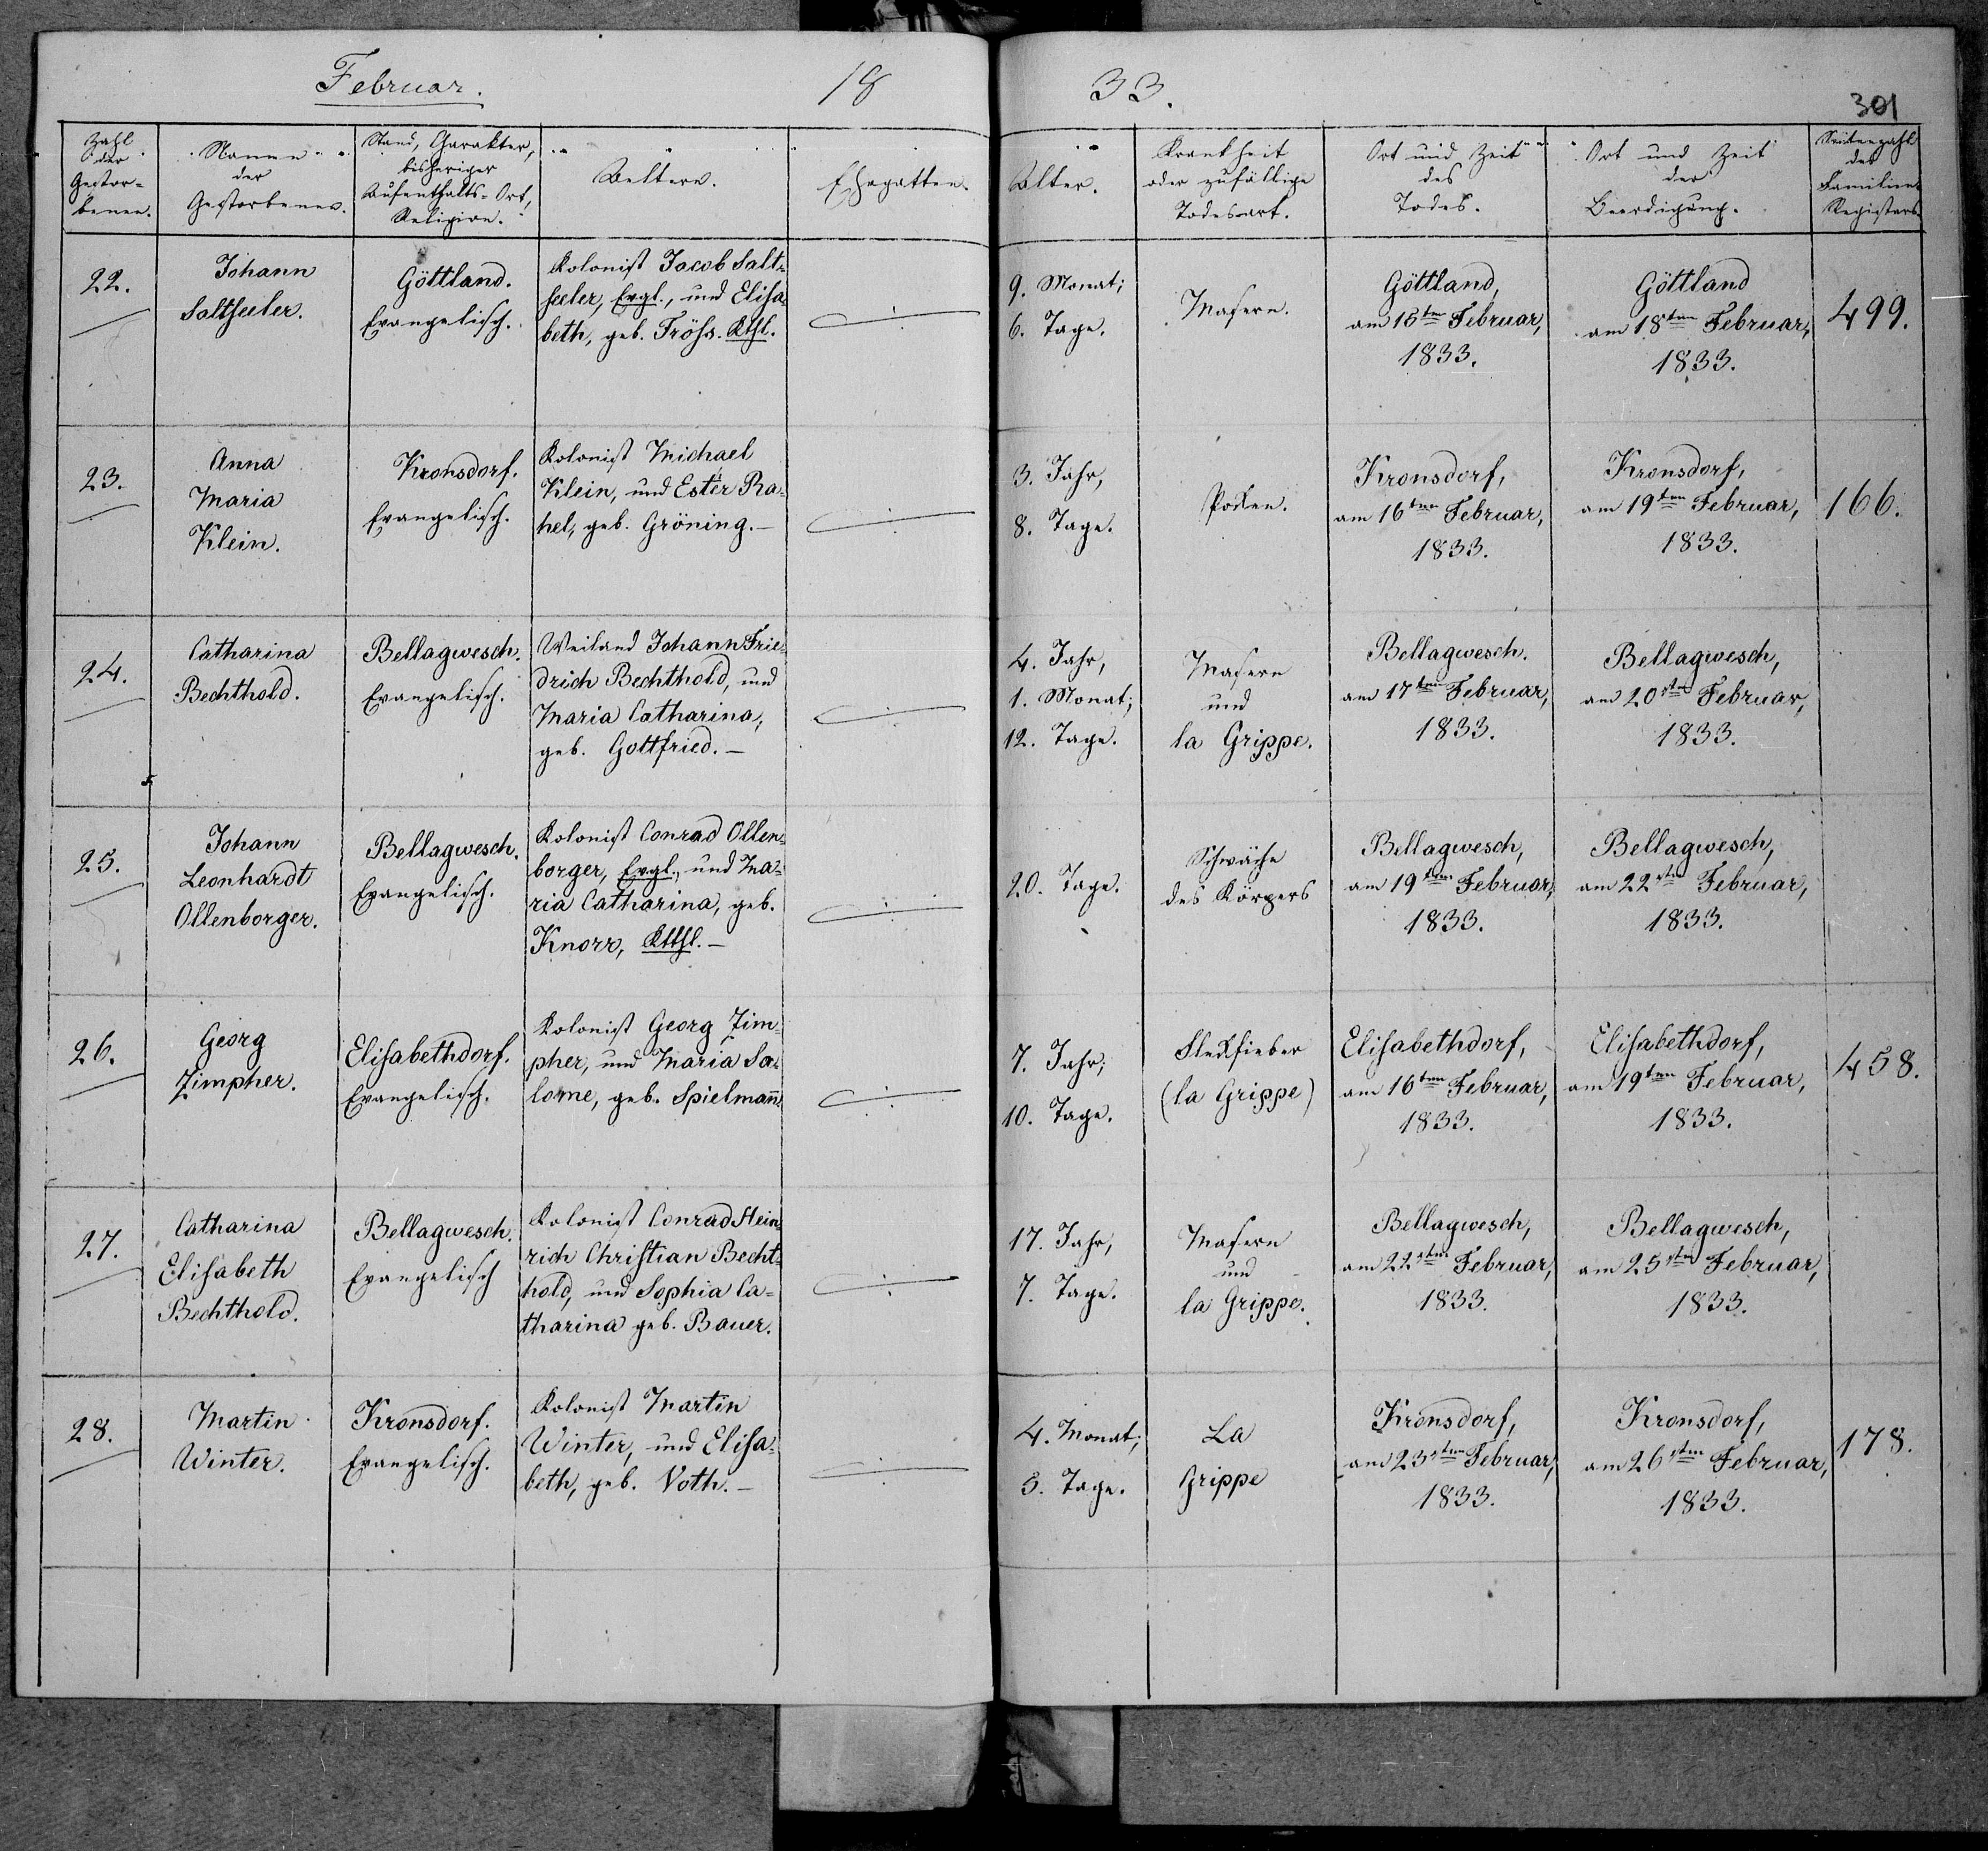 Februar.
18
33.
301
Zahl der Gestor-benen.
Namen der Gestorbenen.
Stand, Charakter, bisheriger Aufenthalts-Ort, Religion.
Aeltern.
Ehegatten.
Alter.
Krankheit oder zufällige Todesart.
Ort und Zeit des Todes.
Ort und Zeit der Beerdigung.
Seitenzahl des Familien Registers.
22.
Johann
Saltseeler.
Göttland.
Evangelisch.
Kolonist Jacob Salt-
seeler, Evgl., und Elisa-
beth, geb. Fröhs. Kthl.
9. Monat;
6. Tage.
Masern.
Göttland,
am 18ten Februar,
1833.
Göttland
am 18ten Februar,
1833.
499.
23.
Anna
Maria
Klein.
Kronsdorf.
Evangelisch.
Kolonist Michael
Klein, und Ester Ra-
hel, geb. Gröning.-
3. Jahr,
8. Tage.
Pocken.
Kronsdorf,
am 16ten Februar,
1833.
Kronsdorf,
am 19ten Februar,
1833.
166.
24.
Catharina
Bechthold.
Bellagwesch.
Evangelisch.
Weiland Johann Frie-
drich Bechthold, und
Maria Catharina,
geb. Gottfried.-
4. Jahr,
1. Monat;
12. Tage.
Masern
und
la Grippe.
Bellagwesch.
am 17ten Februar,
1833.
Bellagwesch,
am 20sten Februar,
1833.
25.
Johann
Leonhardt
Ollenborger.
Bellagwesch.
Evangelisch.
Kolonist Conrad Ollen-
borger, Evgl., und Ma-
ria Catharina, geb.
Knorr, Kthl.-
20. Tage.
Schwäche
des Körpers
Bellagwesch,
am 19ten Februar,
1833.
Bellagwesch,
am 22sten Februar,
1833.
26.
Georg
Zimpher.
Elisabethdorf.
Evangelisch.
Kolonist Georg Zim-
pher, und Maria Sa-
lome, geb. Spielmañ.
7. Jahr;
10. Tage.
Fleckfieber
(la Grippe)
Elisabethdorf,
am 16ten Februar,
1833.
Elisabethdorf,
am 19ten Februar,
1833.
458.
27.
Catharina
Elisabeth
Bechthold.
Bellagwesch.
Evangelisch
Kolonist Conrad Hein-
rich Christian Becht-
hold, und Sophia Ca-
tharina geb. Bauer.
17. Jahr,
7. Tage.
Masern
und
la Grippe.
Bellagwesch,
am 22sten Februar,
1833.
Bellagwesch,
am 25sten Februar,
1833.
28.
Martin
Winter.
Kronsdorf.
Evangelisch.
Kolonist Martin
Winter, und Elisa-
beth, geb. Voth.-
4. Monat;
5. Tage.
La
Grippe
Kronsdorf,
am 23sten Februar,
1833.
Kronsdorf,
am 26sten Februar,
1833.
178.